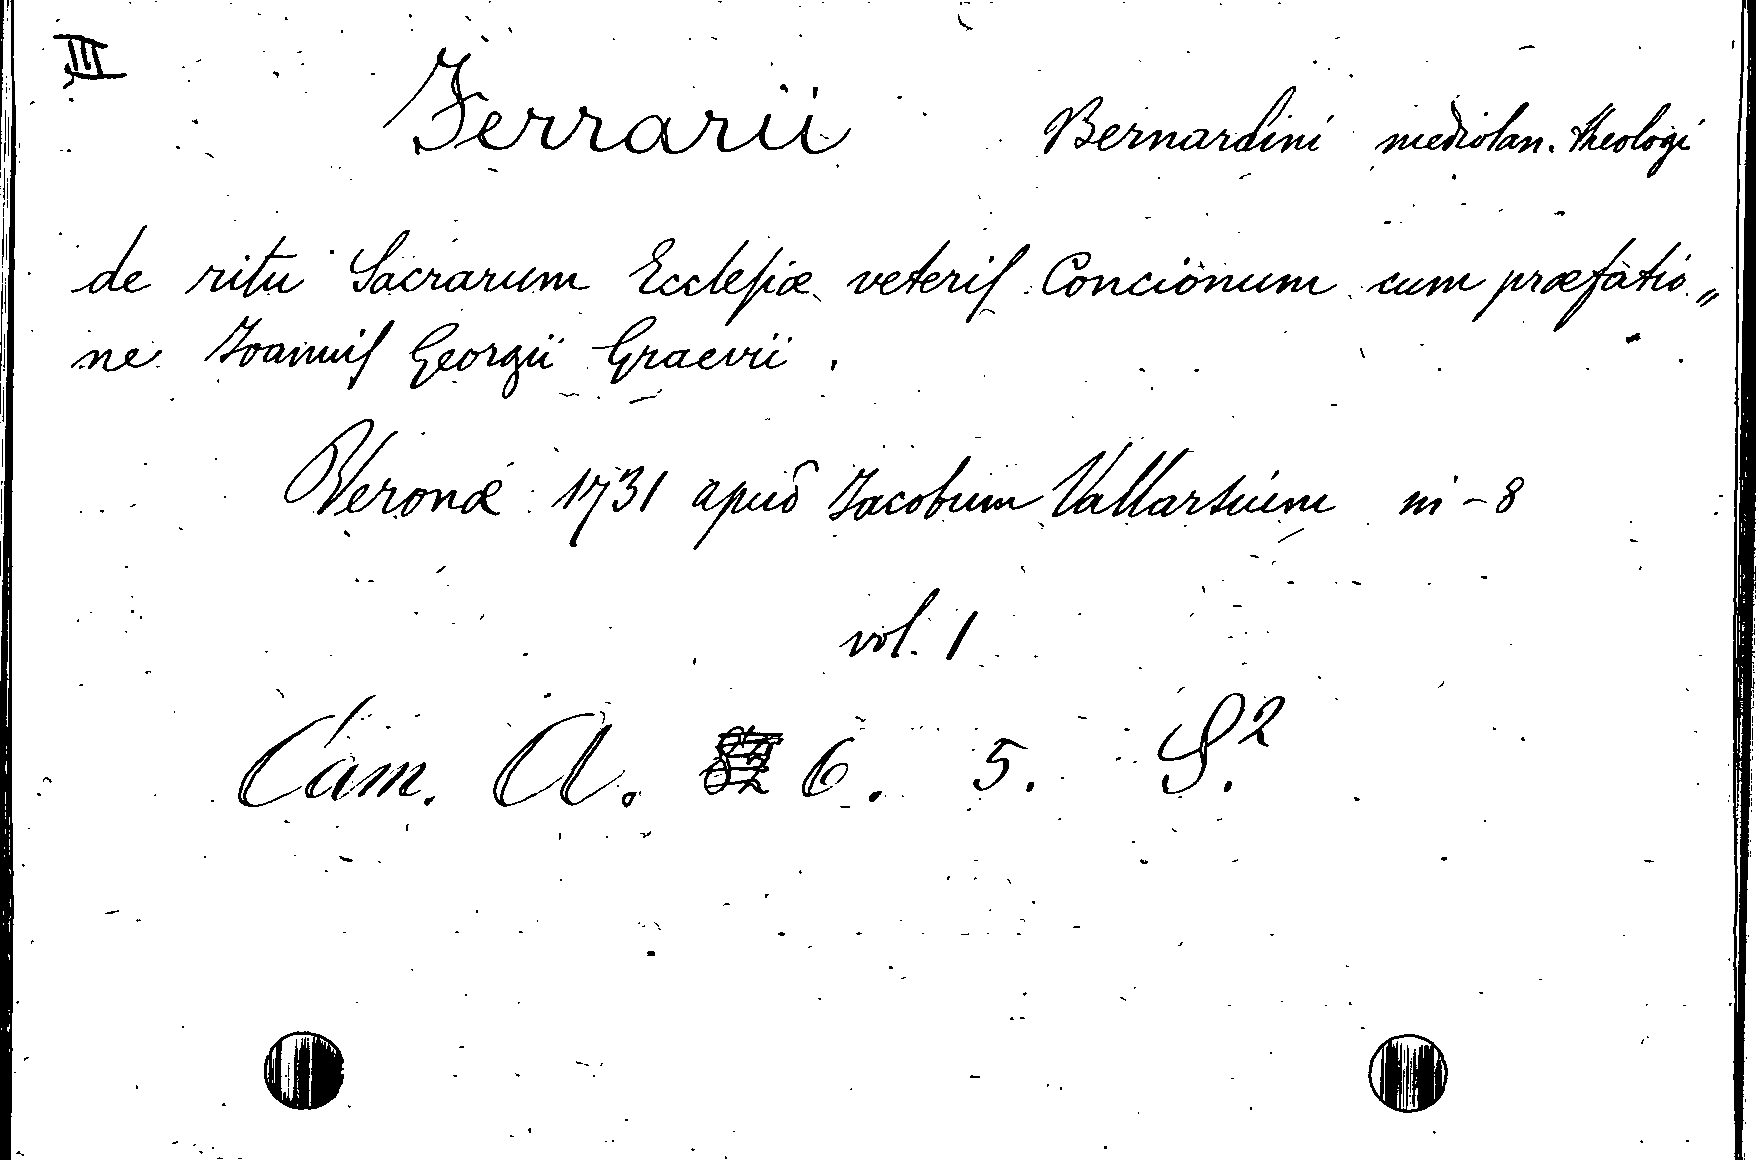 III
Ferrarii Bernardini mediolan. theologi
de ritu Sacrarum Ecclesiæ veteris Concionum cum præfatio„
ne Joannis Georgii Graevii.
Veronæ 1731 apud Jacobum Vallarsium in-8
vol. 1
Cam. A. 6. 5. S.²